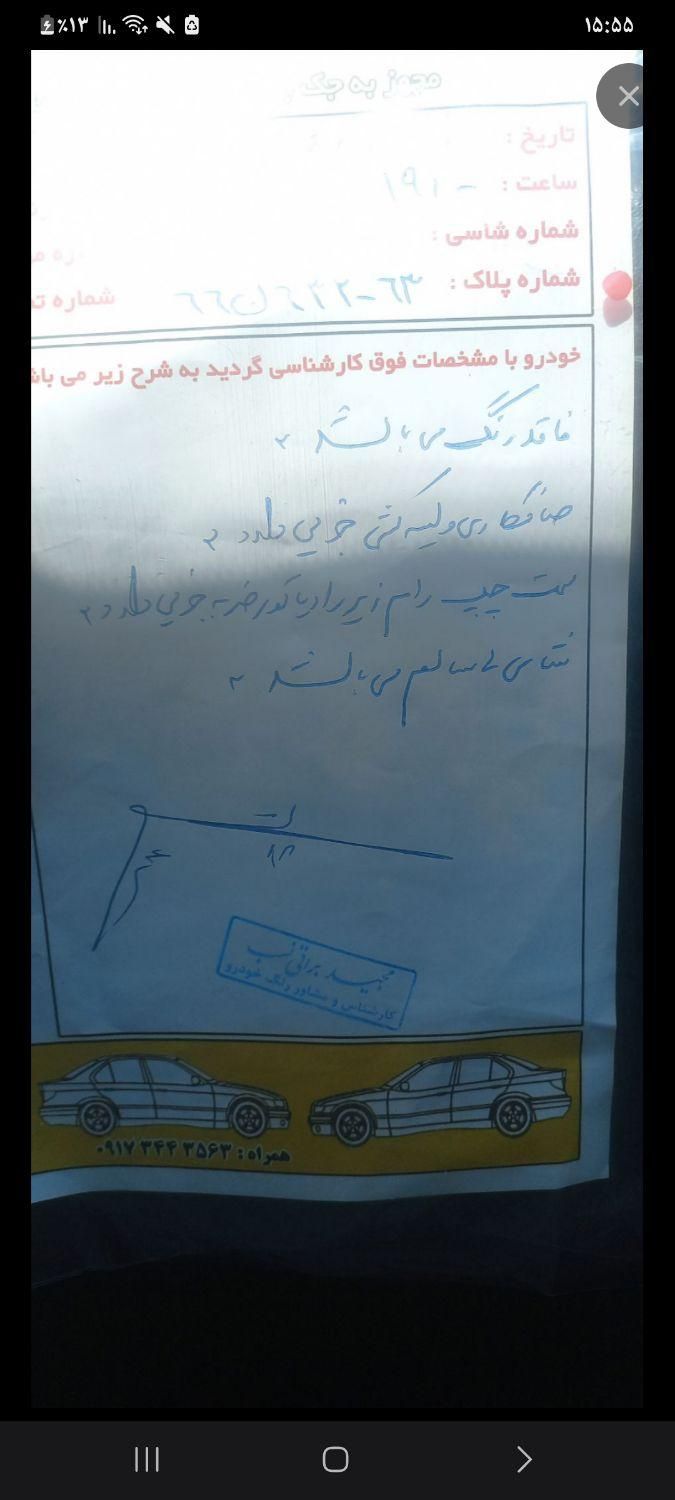 ۱۵:۵۵
٪۱۳
مجهز به جک
تاریخ :
ساعت : ۱۹۱ -
شماره شاسی :
شماره پلاک : ۶۳-
شماره
خودرو با مشخصات فوق کارشناسی گردید به شرح زیر می باش
فاقد رنگ می باشد
صافکاری و لیسه کشی جزیی دارد
سمت چپ رام زیر رادیاتور ضربه جزیی دارد
شاسی ها سالم می باشد
مجید براتی نسب
کارشناس و مشاور رنگ خودرو
همراه : ۰۹۱۷ ۳۴۴ ۳۵۶۳